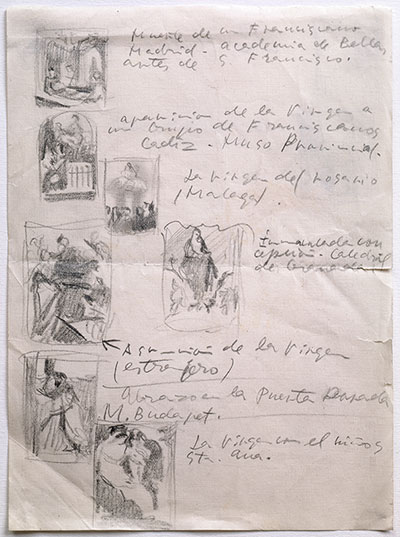 Muerte de un Franciscano
Madrid - academia de Bellas
artes de S. Francisco.
aparición de la Virgen a
un Grupo de Franciscanos
Cadiz - Museo Provincial.
La Virgen del Rosario
(Malaga)
Inmaculada con
cepción - Catedral
de Granada
Asunción de la Virgen
(estranjero)
Abrazo en la Puerta Dorada
M. Budapet.
La Virgen con el niño y
Sta. Ana.